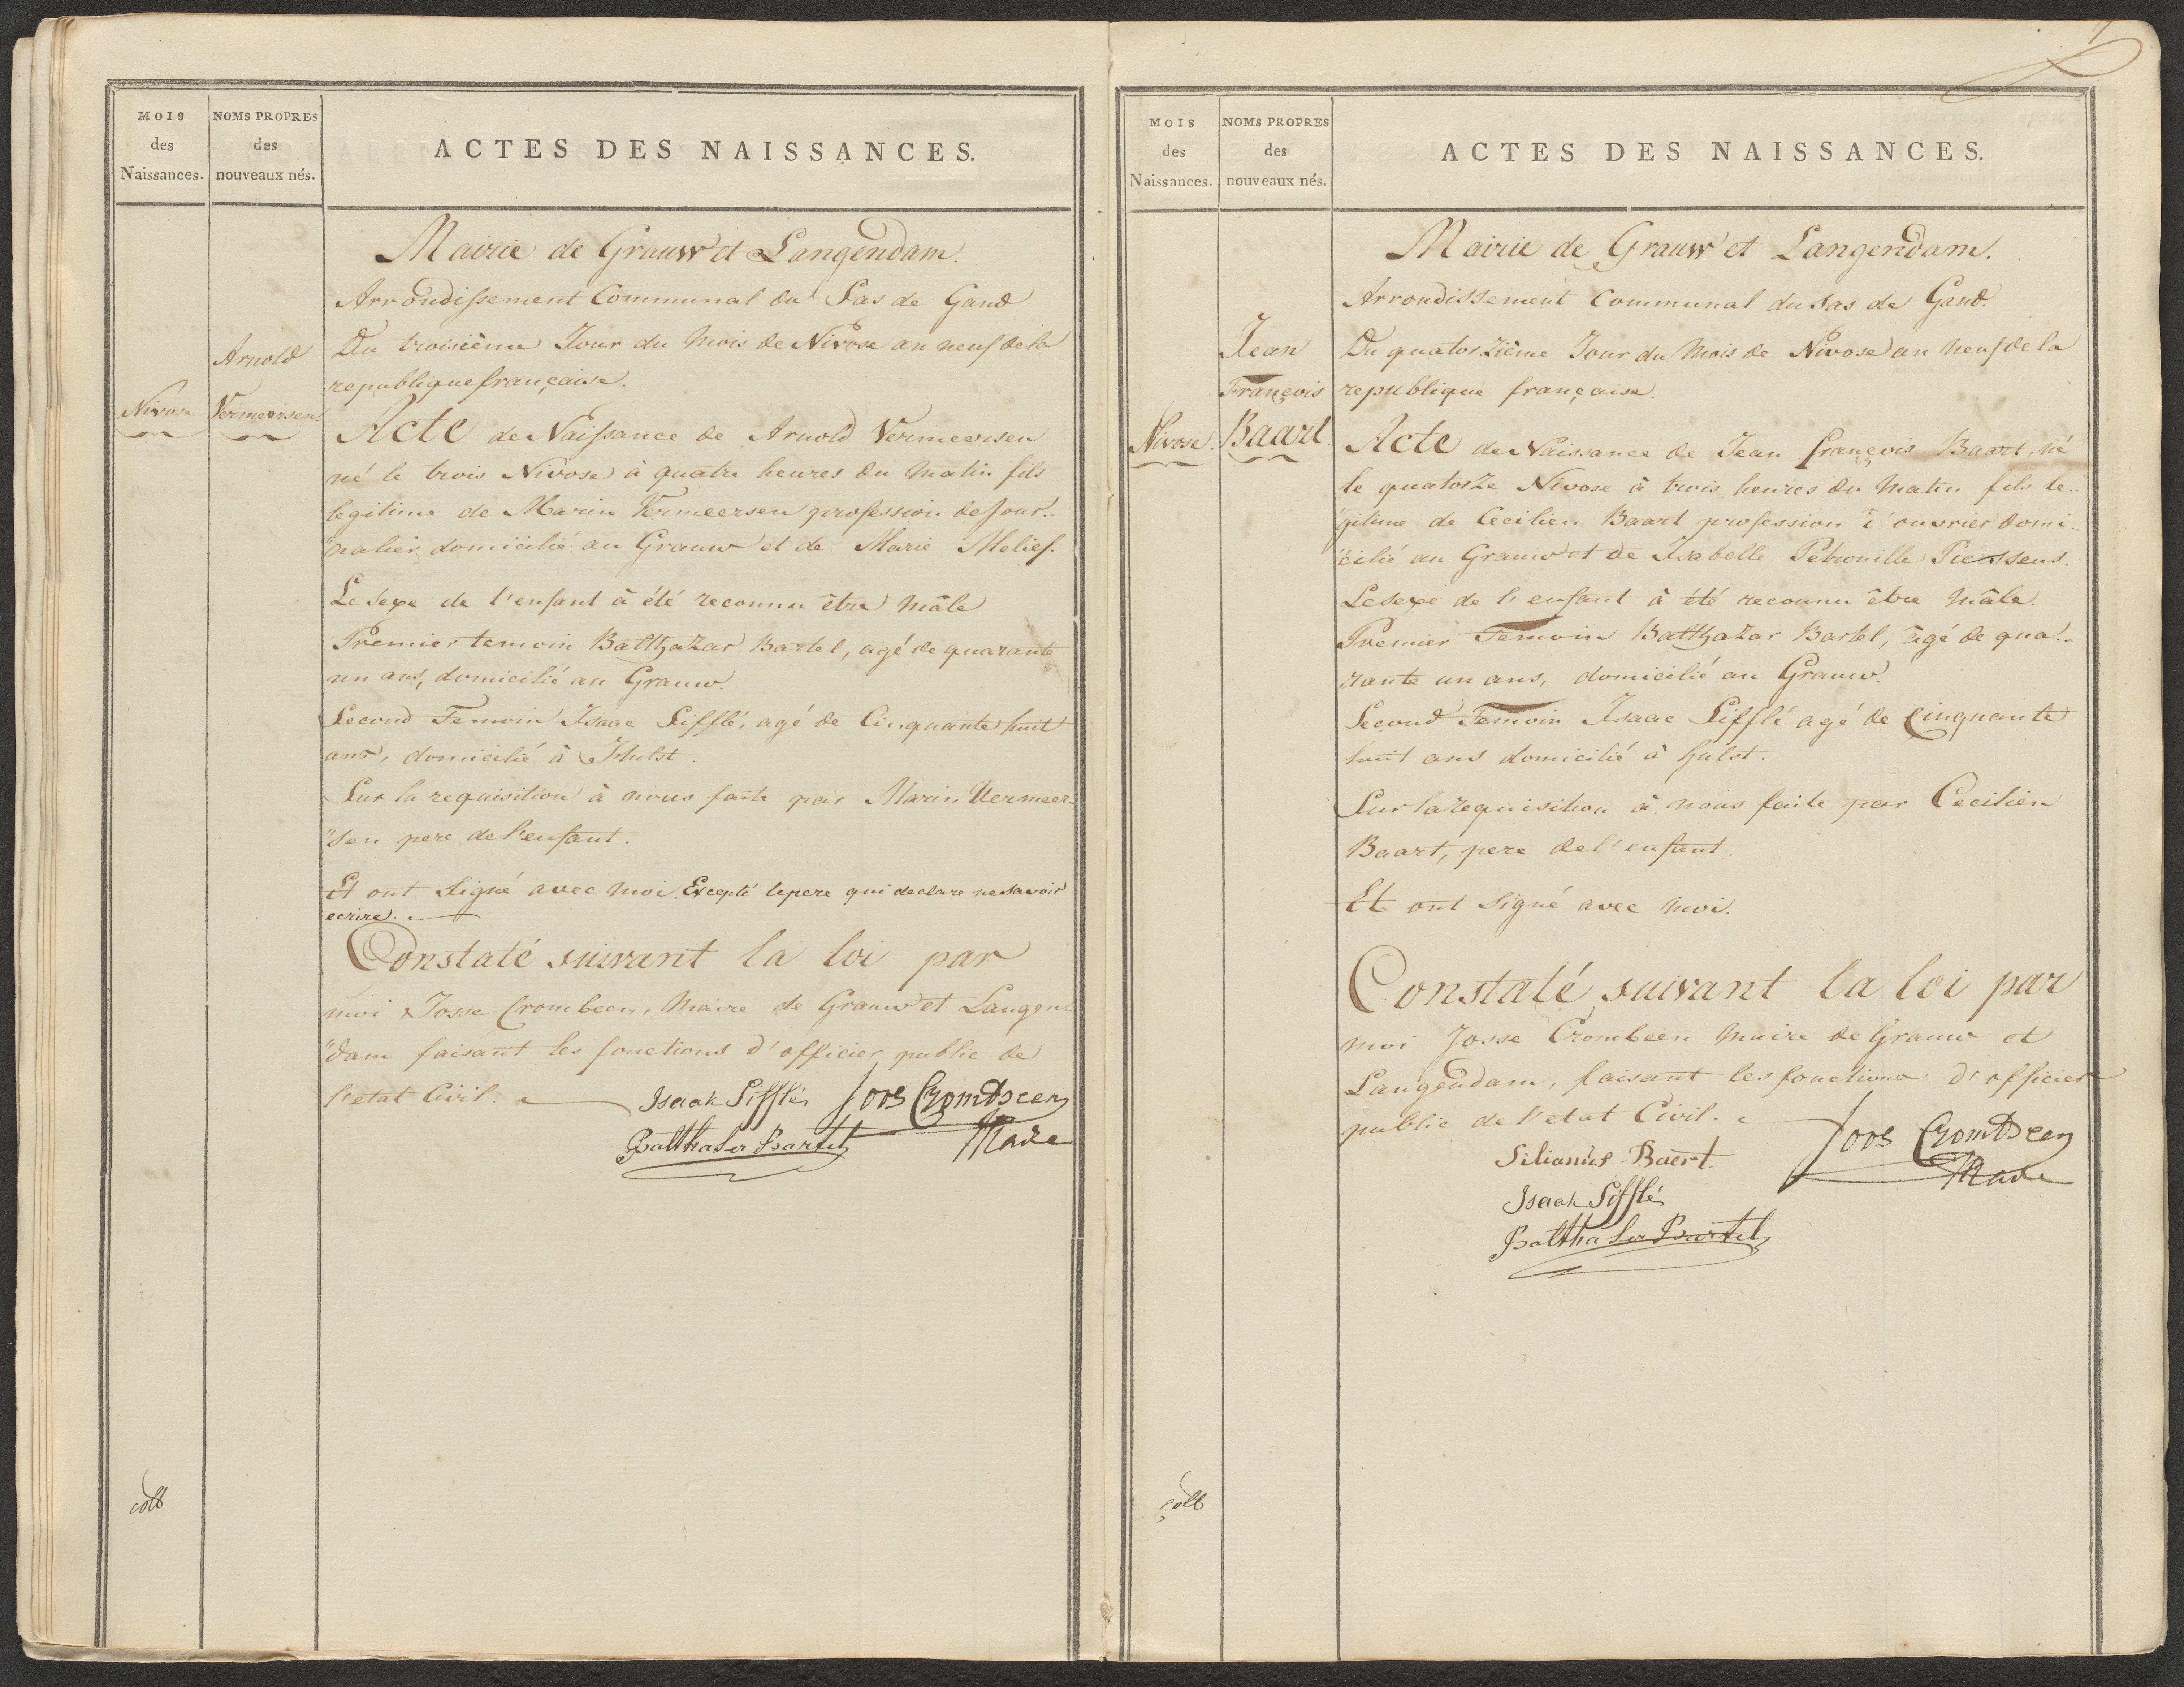 MOIS
des
Naissances.
NOMS PROPRES
des
nouveaux nés.
ACTES DES NAISSANCES.
Nivose
Arnold
Vermeersen
Mairie de Grauw et Langendam.
Arrondissement Communal du Sas de Gand
Du troisième Jour du Mois de Nivose an neuf de la
republique française.
Acte de Naissance de Arnold Vermeersen
né le trois Nivose à quatre heures du Matin fils
legitime de Marin Vermeersen profession de Jour..
"nalier, domicilié au Grauw et de Marie Melief.
Le Sexe de l'enfant à été reconnu être Mâle
Premier temoin Balthazar Bartel, agé de quarante
un ans, domicilié au Grauw.
Second Temoin Isaac Sifflé, agé de Cinquante huit
ans, domicilié à Hulst.
Sur la requisition à nous faite par Marin Vermeer-
"sen pere de l'enfant.
Et ont Signé avec Moi. Excepté le pere qui declare ne savoir
ecrire.
Constaté suivant la loi par
moi Josse Crombeen, Maire de Grauw et Langen..
"dam faisant les fonctions d'officier public de
l'etat Civil.
Isaak Sifflé
Joos Crombeen
Balthaser Bartel
Maire
colt
MOIS
des
Naissances.
NOMS PROPRES
des
nouveaux nés.
ACTES DES NAISSANCES.
Nivose.
Jean
François
Baart
Mairie de Grauw et Langendam.
Arrondissement Communal du Sas de Gand.
Du quatorzième Jour du Mois de Nivose an neuf de la
republique française.
Acte de Naissance de Jean François Baart, né
le quatorze Nivose à trois heures du Matin fils le..
"gitime de Cecilien Baart profession d'ouvrier domi..
"cilié au Grauw et de Isabelle Petronille Piessens.
Le sexe de l'enfant à été reconnu être Mâle.
Premier Temoin Balthazar Bartel, agé de qua..
rante un ans, domicilié au Grauw.
Second Temoin Isaac Sifflé agé de Cinquante
huit ans domicilié à hulst.
Sur la requisition à nous faite par Cecilien
Baart, pere de l'enfant.
Et ont Signé avec Moi.
Constaté suivant la loi par
moi Josse Crombeen Maire de Grauw et
Langendam, faisant les fonctions d'officier
public de l'etat Civil.
Joos Crombeen
Silianus Baert
Maire
Isaak Sifflé
Balthaser Bartel
colt